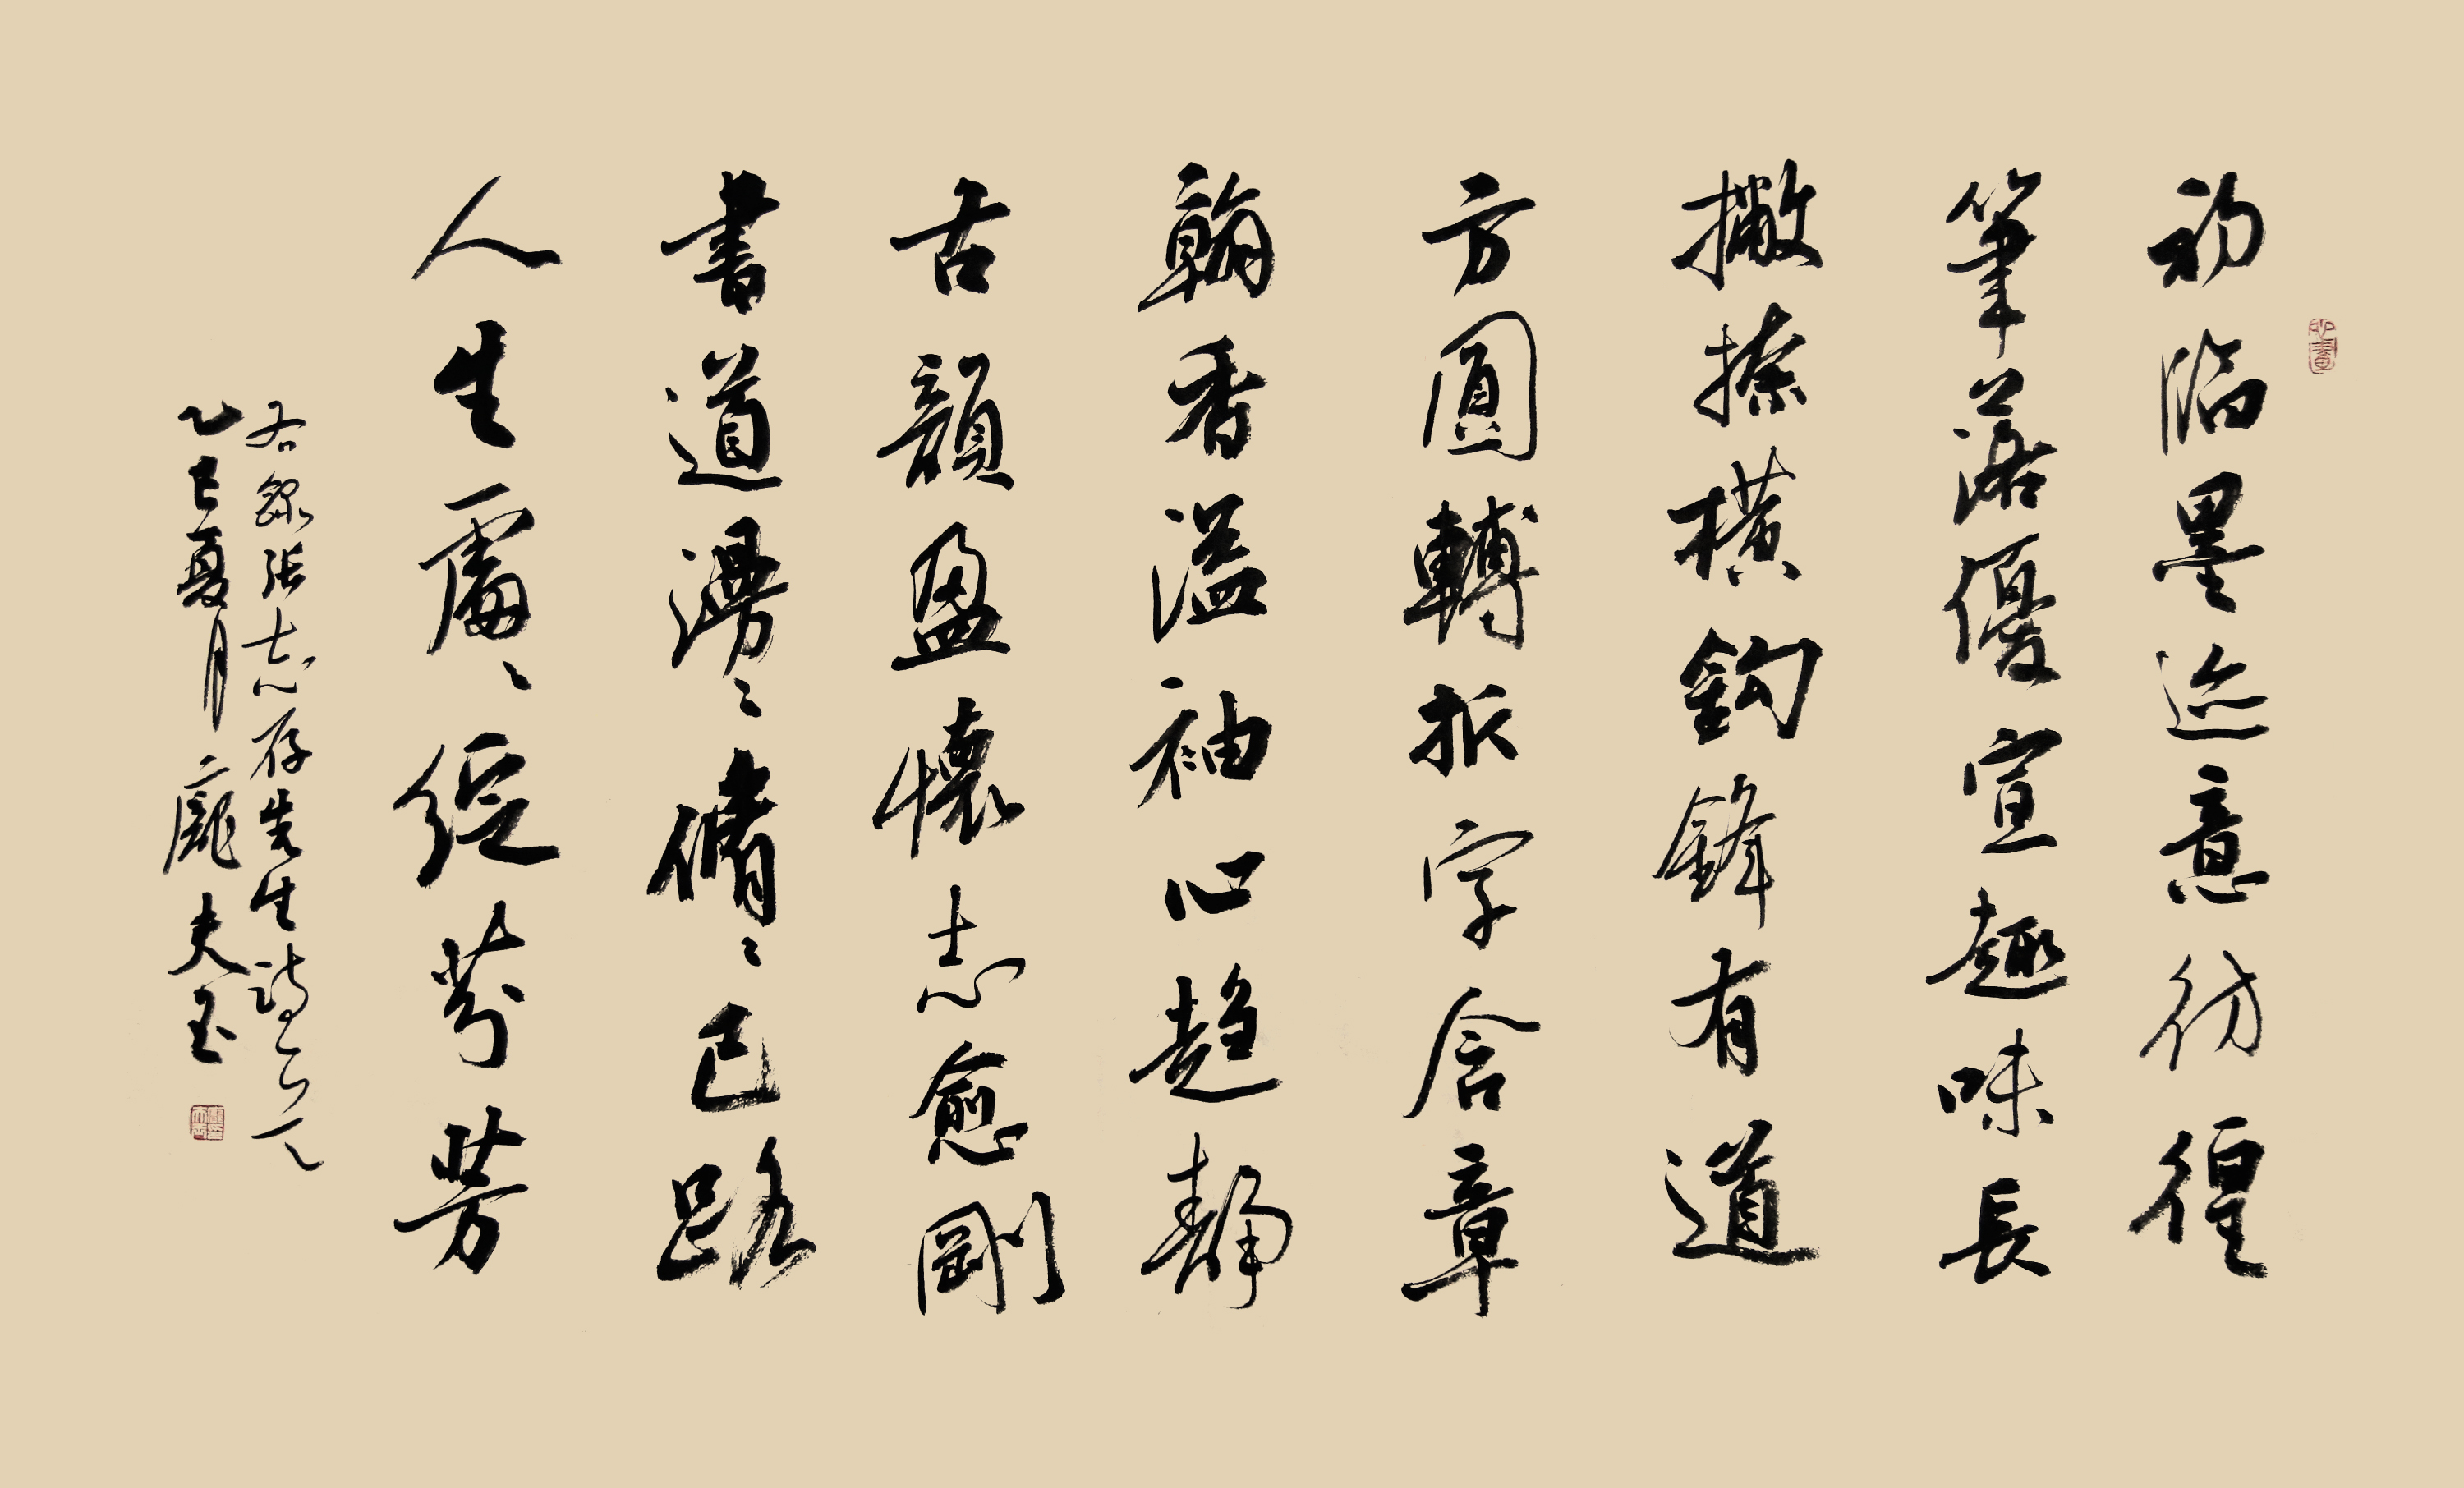 初临墨迹意彷徨
筆落優宣趣味長
撇捺橫鈎鋒有道
方圓轉折字含章
翰香溢袖心趋靜
古韻盈懷志愈剛
書道漫々脩々已路
人生處々綻芬芳
右錄張志存先生詩
乙巳夏月龐夫玉